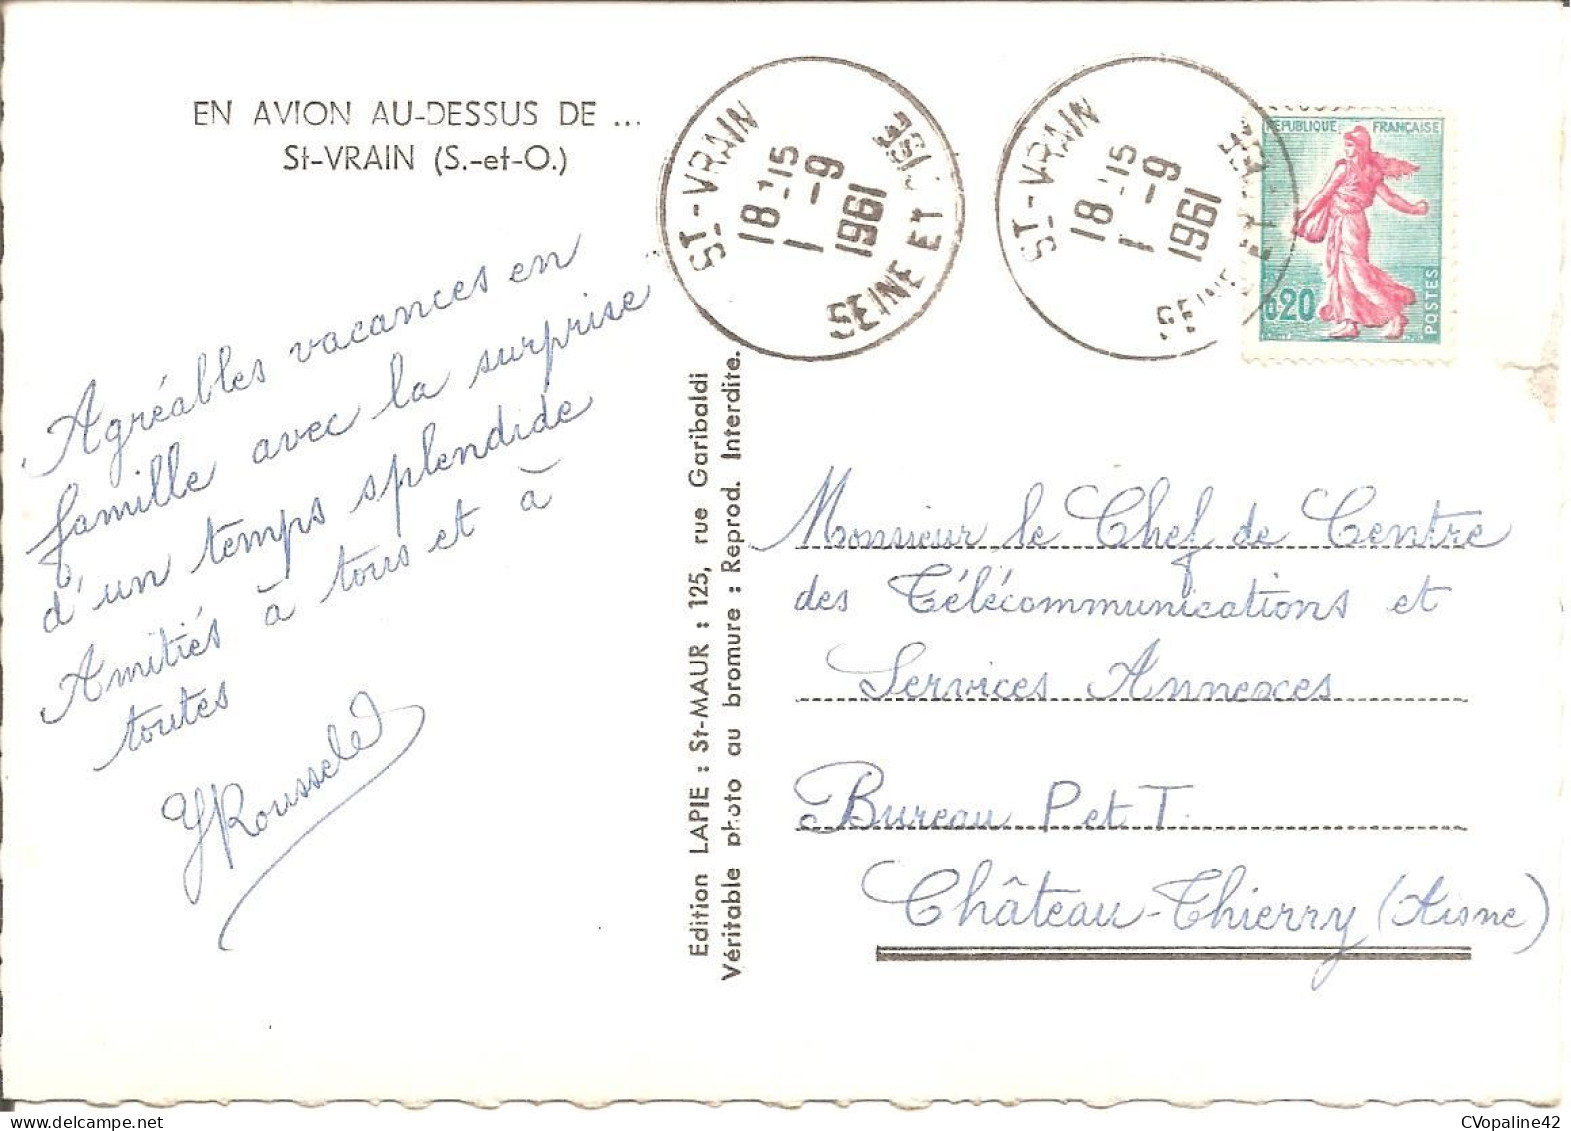 EN AVION AU-DESSUS DE ...
St-VRAIN (S.-et-O.)
Agréables vacances en
famille avec la surprise
d'un temps splendide
Amitiés à tous et à
toutes
YRousselet
Edition LAPIE : St-MAUR : 125, rue Garibaldi
Véritable photo au bromure : Reprod. Interdite.
ST-VRAIN
18 15
1 -9
1961
SEINE ET OISE
ST-VRAIN
18 15
1 -9
1961
SEINE ET OISE
REPUBLIQUE FRANÇAISE
0,20
POSTES
Monsieur le Chef de Centre
des Télécommunications et
Services Annexes
Bureau P et T.
Château-Thierry (Aisne)
CVopaline42